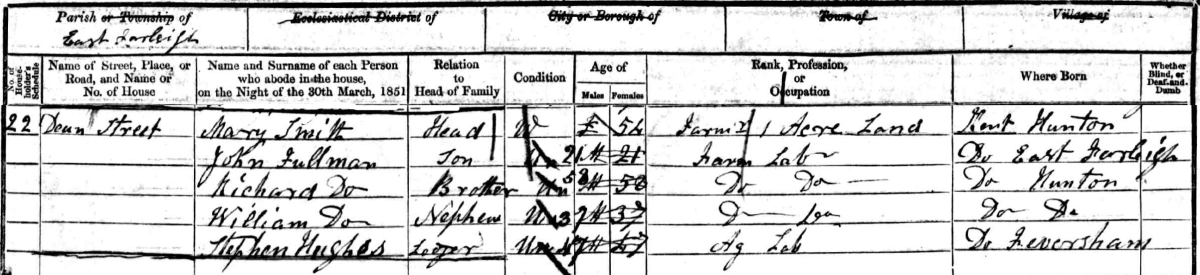 Parish or Township of Ecclesiastical District of City or Borough of Town of Village of
East Farleigh
No. of House-holder's Schedule Name of Street, Place, or Road, and Name or No. of House Name and Surname of each Person who abode in the house, on the Night of the 30th March, 1851 Relation to Head of Family Condition Age of Males Females Rank, Profession, or Occupation Where Born Whether Blind, or Deaf-and-Dumb
22 Dean Street Mary Smith Head W F 54 Farmr 1 Acre Land Kent Hunton
John Fullman Son Un 21 M 21 Farm Lab Do East Farleigh
Richard Do Brother Un 58 M 58 Do Do Do Hunton
William Do Nephew Un 37 M 37 Do Do Do Do
Stephen Hughes Lodger Un 47 M 47 Ag Lab Do Feversham